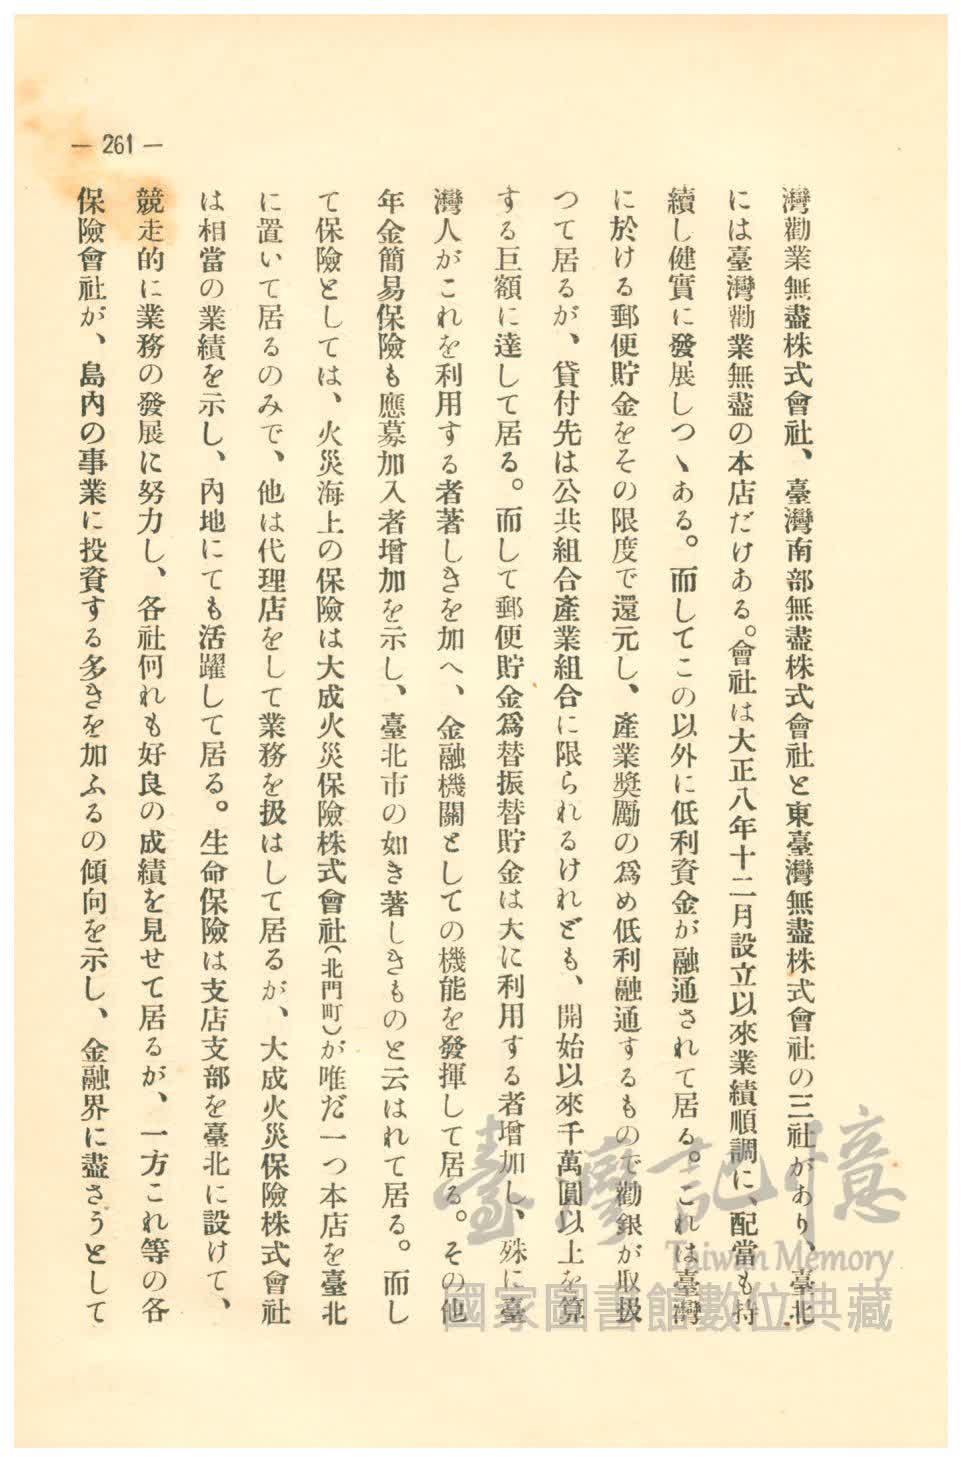 — 261 —
灣勸業無盡株式會社、臺灣南部無盡株式會社と東臺灣無盡株式會社の三社があり、臺北
には臺灣勸業無盡の本店だけある。會社は大正八年十二月設立以來業績順調に、配當も持
續し健實に發展しつヽある。而してこの以外に低利資金が融通されて居る。これは臺灣
に於ける郵便貯金をその限度で還元し、產業獎勵の爲め低利融通するもので勸銀が取扱
つて居るが、貸付先は公共組合產業組合に限られるけれども、開始以來千萬圓以上を算
する巨額に達して居る。而して郵便貯金爲替振替貯金は大に利用する者增加し、殊に臺
灣人がこれを利用する者著しきを加へ、金融機關としての機能を發揮して居る。その他
年金簡易保險も應募加入者增加を示し、臺北市の如き著しきものと云はれて居る。而し
て保險としては、火災海上の保險は大成火災保險株式會社(北門町)が唯だ一つ本店を臺北
に置いて居るのみで、他は代理店をして業務を扱はして居るが、大成火災保險株式會社
は相當の業績を示し、內地にても活躍して居る。生命保險は支店支部を臺北に設けて、
競走的に業務の發展に努力し、各社何れも好良の成績を見せて居るが、一方これ等の各
保險會社が、島內の事業に投資する多きを加ふるの傾向を示し、金融界に盡さうとして
臺灣記憶
Taiwan Memory
國家圖書館數位典藏